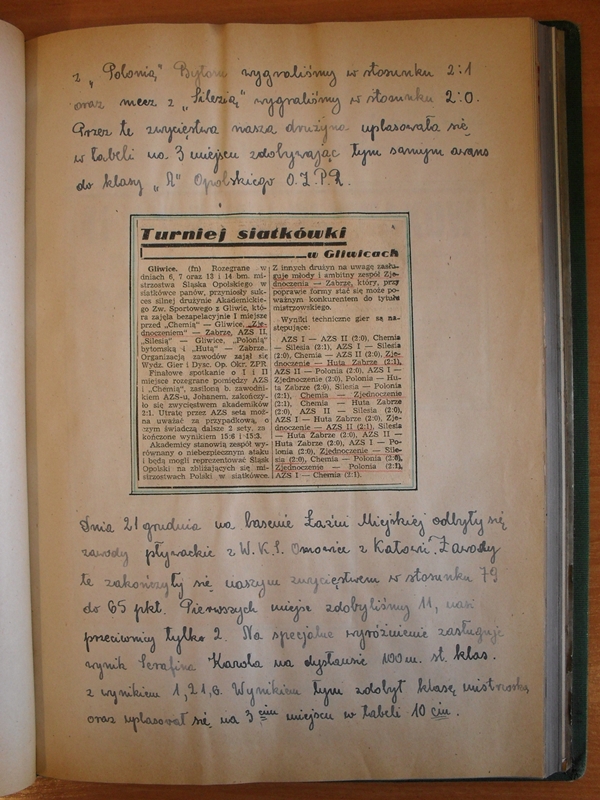 z „Polonią" Bytom wygraliśmy w stosunku 2:1
oraz mecz z „Silezią" wygraliśmy w stosunku 2:0.
Przez te zwycięstwa nasza drużyna uplasowała się
w tabeli na 3 miejscu zdobywając tym samym awans
do klasy „A" Opolskiego O.Z.P.R.
Turniej siatkówki
w Gliwicach
Gliwice. (fn) Rozegrane w
dniach 6, 7 oraz 13 i 14 bm. mi-
strzostwa Śląska Opolskiego w
siatkówce panów, przyniosły suk-
ces silnej drużynie Akademickie-
go Zw. Sportowego z Gliwic, któ-
ra zajęła bezapelacyjnie I miejsce
przed „Chemią" — Gliwice, „Zje-
dnoczeniem" — Zabrze, AZS II,
„Silesią" — Gliwice, „Polonią"
bytomską i „Hutą" — Zabrze.
Organizacją zawodów zajął się
Wydz. Gier i Dysc. Op. Okr. ZPR.
Finałowe spotkanie o I i II
miejsce rozegrane pomiędzy AZS
i „Chemią", zasiloną b. zawodni-
kiem AZS-u, Johanem, zakończy-
ło się zwycięstwem akademików
2:1. Utratę przez AZS seta moż-
na uważać za przypadkową, o
czym świadczą dalsze 2 sety, za-
kończone wynikiem 15:6 i 15:3.
Akademicy stanowią zespół wy-
równany o niebezpiecznym ataku
i będą mogli reprezentować Śląsk
Opolski na zbliżających się mi-
strzostwach Polski w siatkówce.
Z innych drużyn na uwagę zasłu-
guje młody i ambitny zespół Zje-
dnoczenia — Zabrze, który, przy
poprawie formy stać się może po-
ważnym konkurentem do tytułu
mistrzowskiego.
Wyniki techniczne gier są na-
stępujące:
AZS I — AZS II (2:0), Chemia
— Silesia (2:1), AZS I — Silesia
(2:0), Chemia — AZS II (2:0), Zje-
dnoczenie — Huta Zabrze (2:1),
AZS II — Polonia (2:0), AZS I —
Zjednoczenie (2:0), Polonia — Hu-
ta Zabrze (2:0), Silesia — Polonia
(2:1), Chemia — Zjednoczenie
(2:1), Chemia — Huta Zabrze
(2:0), AZS II — Silesia (2:0),
AZS I — Huta Zabrze (2:0), Zje-
dnoczenie — AZS II (2:1), Silesia
— Huta Zabrze (2:0), AZS II —
Huta Zabrze (2:0), AZS I — Po-
lonia (2:0), Zjednoczenie — Sile-
sia (2:0), Chemia — Polonia (2:0),
Zjednoczenie — Polonia (2:1),
AZS I — Chemia (2:1).
Dnia 21 grudnia na basenie Łaźni Miejskiej odbyły się
zawody pływackie z W.K.S. z Katowic. Zawody
te zakończyły się naszym zwycięstwem w stosunku 79
do 65 pkt. Pierwszych miejsc zdobyliśmy 11, nasi
przeciwnicy tylko 2. Na specjalne wyróżnienie zasługuje
wynik Serafina Karola na dystansie 100m. st. klas.
z wynikiem 1,21,6. Wynikiem tym zdobył klasę mistrzowską
oraz uplasował się na 3 cim miejscu w tabeli 10 ciu.